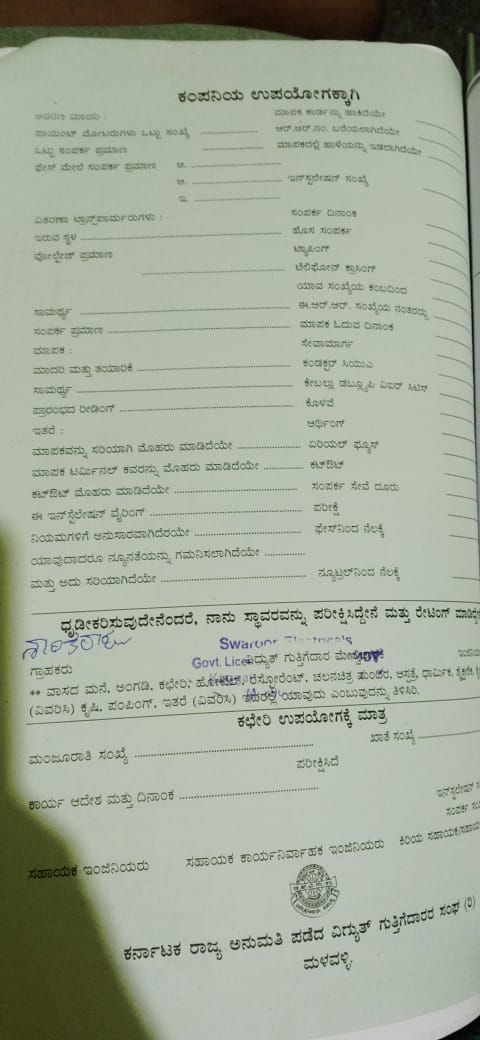 ಕಂಪನಿಯ ಉಪಯೋಗಕ್ಕಾಗಿ
ಆವರಣ ಮಾದರಿ : ಮಾಪಕ ಕಾರ್ಡನ್ನು ಹಾಕಿದೆಯೇ
ಪಾಯಿಂಟ್ ಮೋಟರುಗಳು ಒಟ್ಟು ಸಂಖ್ಯೆ ಆರ್.ಆರ್.ನಂ. ಬರೆಯಲಾಗಿದೆಯೇ
ಒಟ್ಟು ಸಂಪರ್ಕ ಪ್ರಮಾಣ ಮಾಪಕದಲ್ಲಿ ಹಾಳೆಯನ್ನು ಇಡಲಾಗಿದೆಯೇ
ಫೇಸ್ ಮೇಲೆ ಸಂಪರ್ಕ ಪ್ರಮಾಣ ಅ.
ಆ. ಇನ್‌ಸ್ಟಲೇಷನ್ ಸಂಖ್ಯೆ
ಇ.
ವಿತರಣಾ ಟ್ರಾನ್ಸ್‌ಪಾರ್ಮರುಗಳು : ಸಂಪರ್ಕ ದಿನಾಂಕ
ಇರುವ ಸ್ಥಳ ಹೊಸ ಸಂಪರ್ಕ
ವೋಲ್ಟೇಜ್ ಪ್ರಮಾಣ ಟ್ಯಾಪಿಂಗ್
ಟೆಲಿಫೋನ್ ಕ್ರಾಸಿಂಗ್
ಯಾವ ಸಂಖ್ಯೆಯ ಕಂಬದಿಂದ
ಸಾಮರ್ಥ್ಯ ಈ.ಆರ್.ಆರ್. ಸಂಖ್ಯೆಯ ನಂತರದ್ದು
ಸಂಪರ್ಕ ಪ್ರಮಾಣ ಮಾಪಕ ಓದುವ ದಿನಾಂಕ
ಮಾಪಕ : ಸೇವಾಮಾರ್ಗ
ಮಾದರಿ ಮತ್ತು ತಯಾರಿಕೆ ಕಂಡಕ್ಟರ್ ಸಿಯುಎ
ಸಾಮರ್ಥ್ಯ ಕೇಬಲ್ಲು ಡಬ್ಲ್ಯೂಪಿ ವಿಐರ್ ಸಿಟಿಸ್
ಪ್ರಾರಂಭದ ರೀಡಿಂಗ್ ಕೊಳವೆ
ಇತರೆ : ಆರ್ಥಿಂಗ್
ಮಾಪಕವನ್ನು ಸರಿಯಾಗಿ ಮೊಹರು ಮಾಡಿದೆಯೇ ಏರಿಯಲ್ ಫ್ಯೂಸ್
ಮಾಪಕ ಟರ್ಮಿನಲ್ ಕವರನ್ನು ಮೊಹರು ಮಾಡಿದೆಯೇ ಕಟ್‌ಔಟ್
ಕಟ್‌ಔಟ್ ಮೊಹರು ಮಾಡಿದೆಯೇ ಸಂಪರ್ಕ ಸೇವೆ ದೂರು
ಈ ಇನ್‌ಸ್ಟಲೇಷನ್ ವೈರಿಂಗ್ ಪರೀಕ್ಷೆ
ನಿಯಮಗಳಿಗೆ ಅನುಸಾರವಾಗಿದೆರಯೇ ಫೇಸ್‌ನಿಂದ ನೆಲಕ್ಕೆ
ಯಾವುದಾದರೂ ನ್ಯೂನತೆಯನ್ನು ಗಮನಿಸಲಾಗಿದೆಯೇ
ಮತ್ತು ಅದು ಸರಿಯಾಗಿದೆಯೇ ನ್ಯೂಟ್ರಲ್‌ನಿಂದ ನೆಲಕ್ಕೆ
ಧೃಡೀಕರಿಸುವುದೇನೆಂದರೆ, ನಾನು ಸ್ಥಾವರವನ್ನು ಪರೀಕ್ಷಿಸಿದ್ದೇನೆ ಮತ್ತು ರೇಟಿಂಗ್
Swaroop Electricals
Govt. Lice ವಿದ್ಯುತ್ ಗುತ್ತಿಗೆದಾರ
ಗ್ರಾಹಕರು
** ವಾಸದ ಮನೆ, ಅಂಗಡಿ, ಕಛೇರಿ, ಹೋಟೆಲ್, ರೆಸ್ಟೋರೆಂಟ್, ಚಲನಚಿತ್ರ ಮಂದಿರ, ಆಸ್ಪತ್ರೆ, ಧಾರ್ಮಿಕ,
(ವಿವರಿಸಿ) ಕೃಷಿ, ಪಂಪಿಂಗ್, ಇತರೆ (ವಿವರಿಸಿ) ಇದರಲ್ಲಿ ಯಾವುದು ಎಂಬುವದನ್ನು ತಿಳಿಸಿರಿ.
ಕಛೇರಿ ಉಪಯೋಗಕ್ಕೆ ಮಾತ್ರ
ಮಂಜೂರಾತಿ ಸಂಖ್ಯೆ ಖಾತೆ ಸಂಖ್ಯೆ
ಪರೀಕ್ಷಿಸಿದೆ
ಕಾರ್ಯ ಆದೇಶ ಮತ್ತು ದಿನಾಂಕ
ಸಹಾಯಕ ಇಂಜಿನಿಯರು ಸಹಾಯಕ ಕಾರ್ಯನಿರ್ವಾಹಕ ಇಂಜಿನಿಯರು ಕಿರಿಯ ಸಹಾಯಕ/
ಕರ್ನಾಟಕ ರಾಜ್ಯ ಅನುಮತಿ ಪಡೆದ ವಿದ್ಯುತ್ ಗುತ್ತಿಗೆದಾರರ ಸಂಘ (ರಿ)
ಮಳವಳ್ಳಿ.